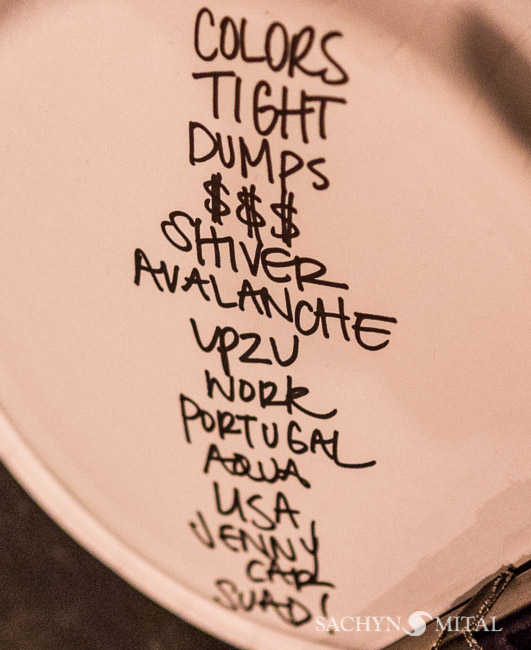 COLORS
TIGHT
DUMPS
$$$
SHIVER
AVALANCHE
UP2U
WORK
PORTUGAL
AQUA
USA
JENNY
CAR
SUAD!
SACHYN MITAL